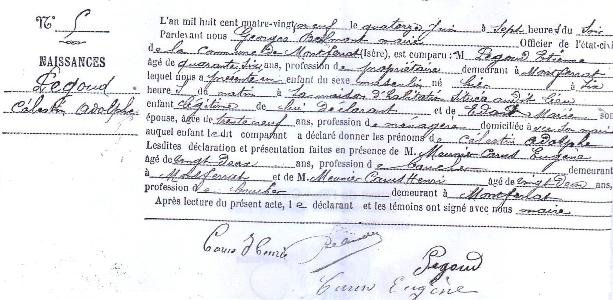 N° 5
NAISSANCES
Pegoud
Célestin Adolphe
L'an mil huit cent quatre-vingt neuf le quatorze Juin à Sept heures du Soir
Pardevant nous Georges maire Officier de l'état-civil
de la Commune De Montferrat (Isère), est comparu : M Pegoud Etienne
âgé de quarante six ans, profession de propriétaire demeurant à Montferrat
lequel nous a présenté un enfant du sexe masculin né hier à six
heures du matin à la maison d'habitation située audit lieu
enfant légitime de lui déclarant et de Marie son
épouse, âgée de trente neuf ans, profession de ménagère domiciliée avec son mari
auquel enfant ledit comparant a déclaré donner les prénoms de Célestin Adolphe
Lesdites déclaration et présentation faites en présence de M. Meunier Carus Eugène
âgé de vingt deux ans, profession de
à Montferrat et de M. Meunier Carus Henri âgé de vingt Deux ans,
profession de demeurant à Montferrat
Après lecture du présent acte, le déclarant et les témoins ont signé avec nous maire
Carus Henri
Pegoud
Carus Eugène